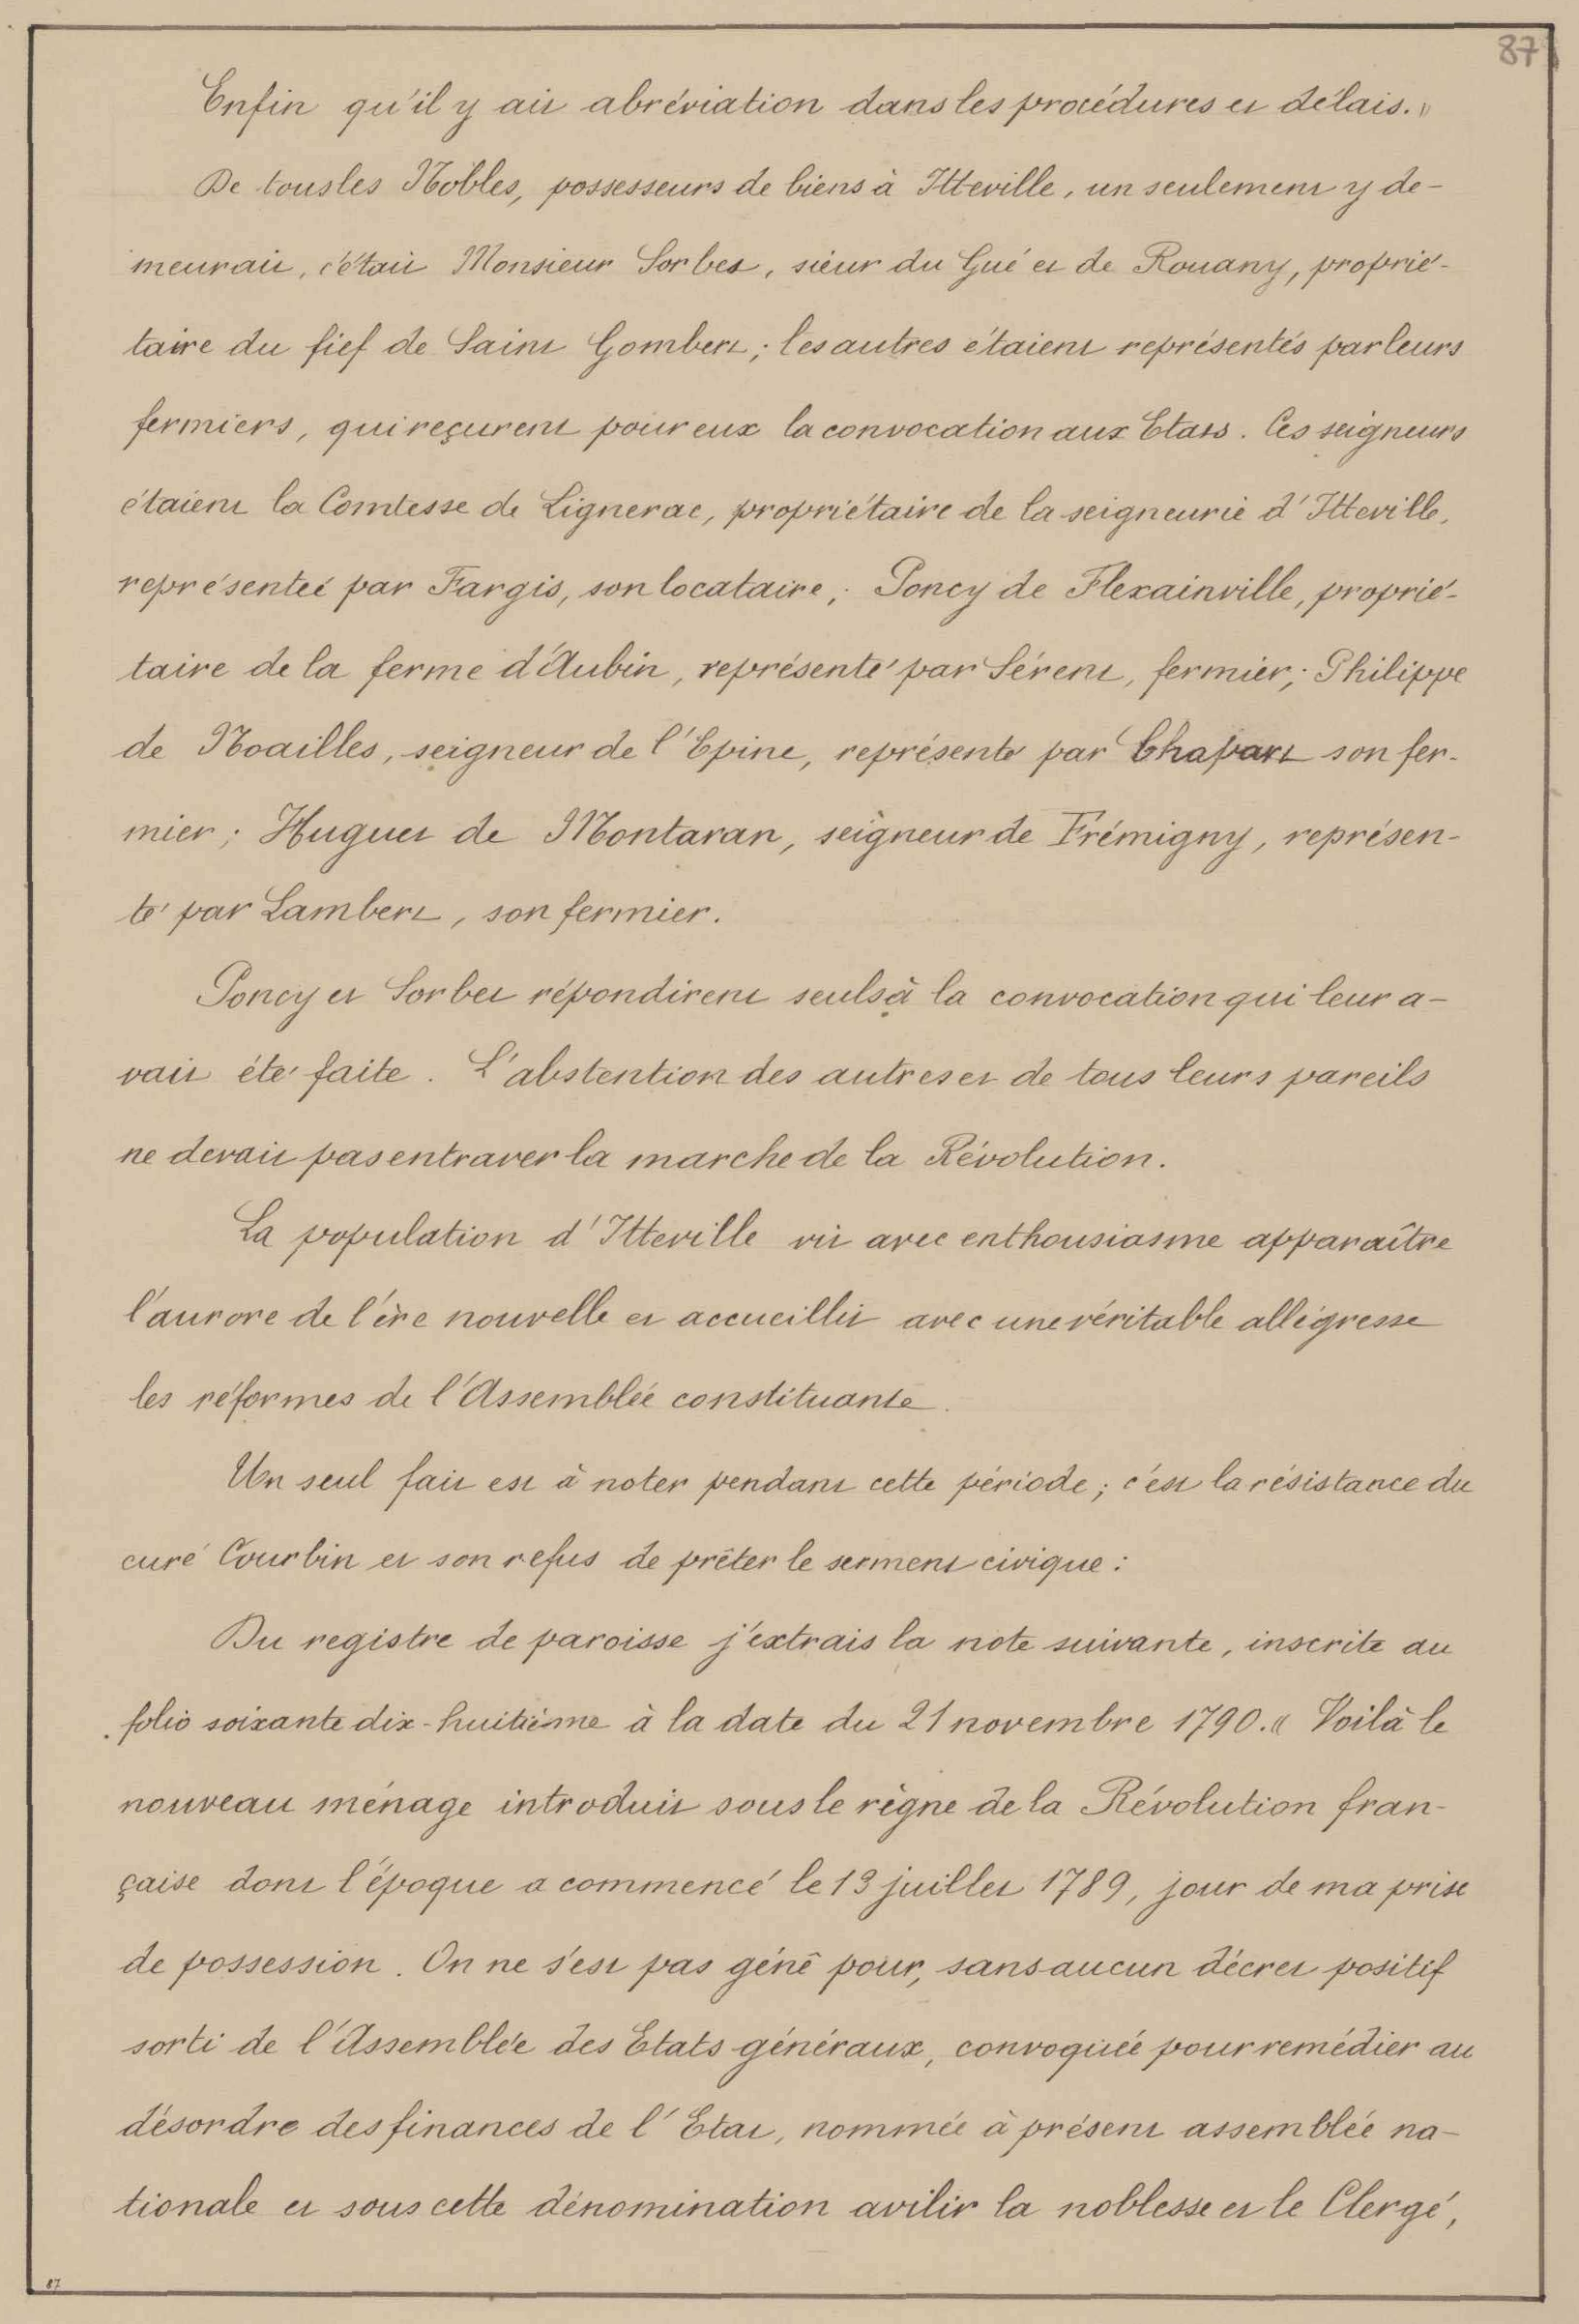 87
Enfin qu'il y ait abréviation dans les procédures et délais. »
De tous les Nobles, possesseurs de biens à Itteville, un seulement y de-
meurait, c'était Monsieur Sorbet, sieur du Gué et de Rouany, proprié-
taire du fief de Saint Gombert ; les autres étaient représentés par leurs
fermiers, qui reçurent pour eux la convocation aux Etats. Ces seigneurs
étaient la Comtesse de Lignerac, propriétaire de la seigneurie d'Itteville,
représentée par Fargis, son locataire ; Poncy de Flexainville, proprié-
taire de la ferme d'Aubin, représenté par Sérent, fermier ; Philippe
de Noailles, seigneur de l'Epine, représenté par Chapart son fer-
mier ; Huguet de Montaran, seigneur de Frémigny, représen-
té par Lambert, son fermier.
Poncy et Sorbet répondirent seuls à la convocation qui leur a-
vait été faite. L'abstention des autres et de tous leurs pareils
ne devait pas entraver la marche de la Révolution.
La population d'Itteville vit avec enthousiasme apparaître
l'aurore de l'ère nouvelle et accueillit avec une véritable allégresse
les réformes de l'Assemblée constituante.
Un seul fait est à noter pendant cette période ; c'est la résistance du
curé Courbin et son refus de prêter le serment civique :
Du registre de paroisse j'extrais la note suivante, inscrite au
folio soixante dix-huitième à la date du 21 novembre 1790. « Voilà le
nouveau ménage introduit sous le règne de la Révolution fran-
çaise dont l'époque a commencé le 13 juillet 1789, jour de ma prise
de possession. On ne s'est pas géné pour, sans aucun décret positif
sorti de l'Assemblée des Etats généraux, convoquée pour remédier au
désordre des finances de l'Etat, nommée à présent assemblée na-
tionale et sous cette dénomination avilir la noblesse et le Clergé,
87